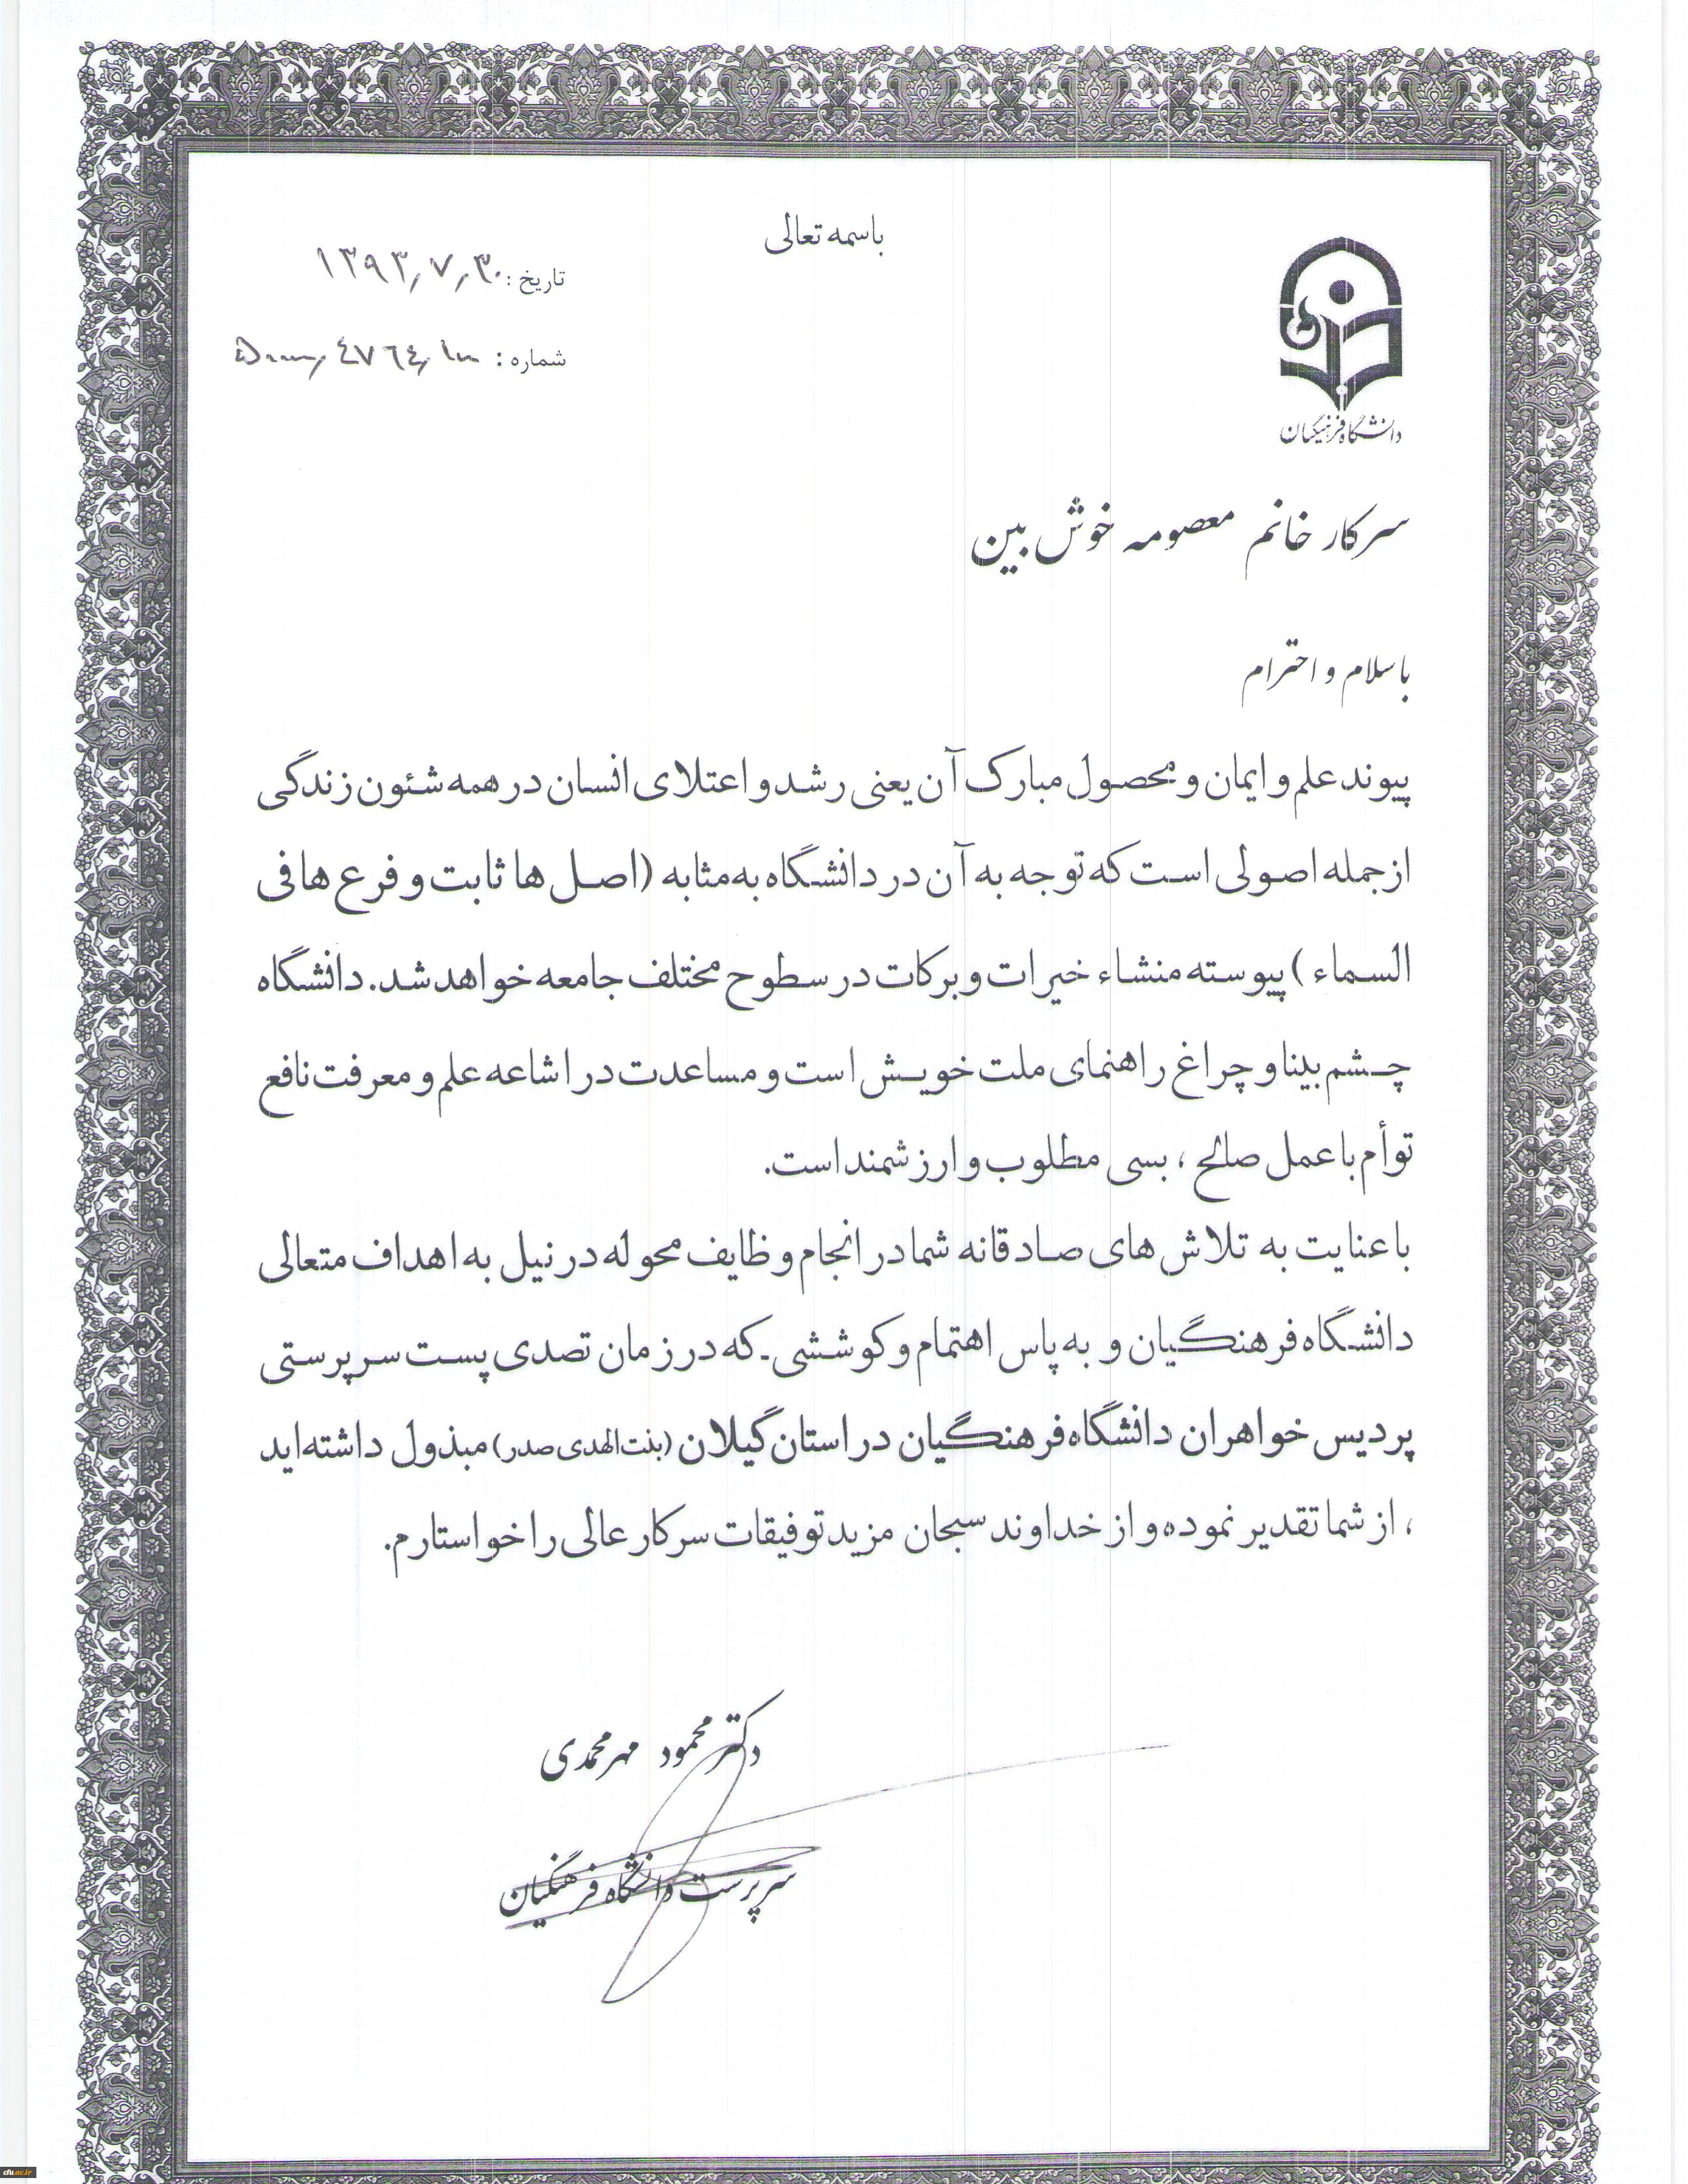 باسمه تعالی
تاریخ: ۱۳۹۳/۷/۳۰
شماره:
دانشگاه فرهنگیان
سرکار خانم معصومه خوش بین
با سلام و احترام
پیوند علم و ایمان و محصول مبارک آن یعنی رشد و اعتلای انسان در همه شئون زندگی
از جمله اصولی است که توجه به آن در دانشگاه به مثابه (اصل ها ثابت و فرع ها فی
السماء) پیوسته منشاء خیرات و برکات در سطوح مختلف جامعه خواهد شد. دانشگاه
چشم بینا و چراغ راهنمای ملت خویش است و مساعدت در اشاعه علم و معرفت نافع
توأم با عمل صالح، بسی مطلوب و ارزشمند است.
با عنایت به تلاش های صادقانه شما در انجام وظایف محوله در نیل به اهداف متعالی
دانشگاه فرهنگیان و به پاس اهتمام و کوششی - که در زمان تصدی پست سرپرستی
پردیس خواهران دانشگاه فرهنگیان در استان گیلان (بنت الهدی صدر) مبذول داشته اید
، از شما تقدیر نموده و از خداوند سبحان مزید توفیقات سرکار عالی را خواستارم.
دکتر محمود مهرمحمدی
سرپرست دانشگاه فرهنگیان
cfu.ac.ir